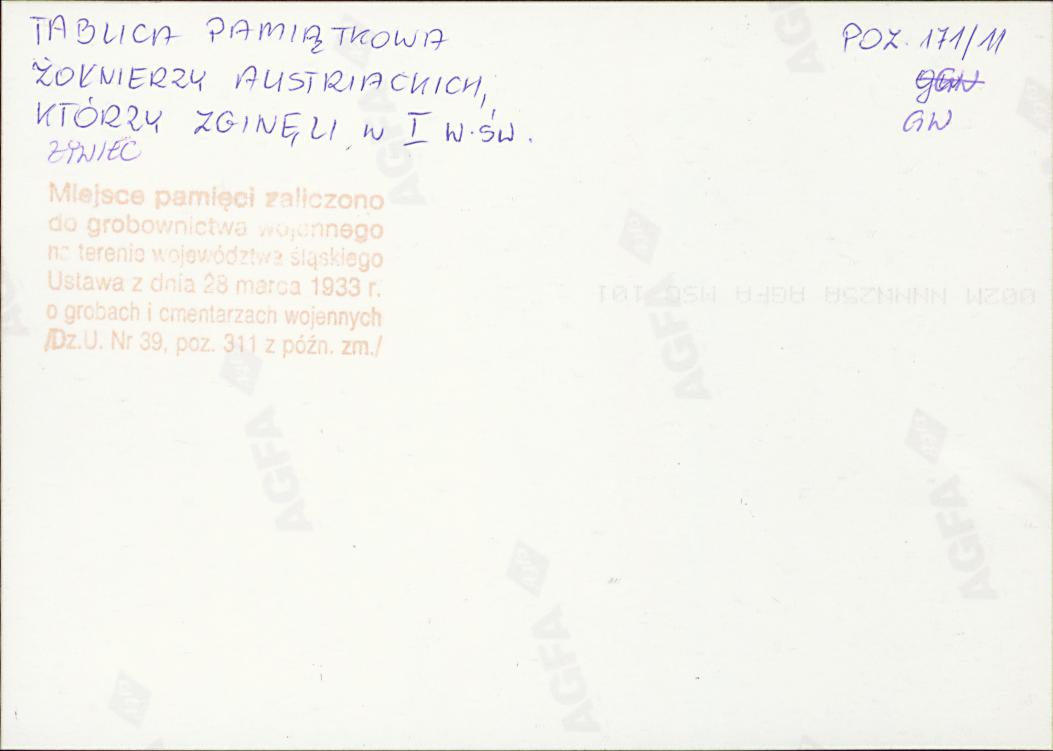 TABLICA PAMIĄTKOWA
ŻOŁNIERZY AUSTRIACKICH,
KTÓRZY ZGINĘLI W I W.ŚW.
ŻYWIEC
POZ. 171/11
GW
Miejsce pamięci zaliczono
do grobownictwa wojennego
na terenie województwa śląskiego
Ustawa z dnia 28 marca 1933 r.
o grobach i cmentarzach wojennych
/Dz.U. Nr 39, poz. 311 z późn. zm./
AGFA
AGFA
AGFA
AGFA
AGFA
AGFA
AGFA